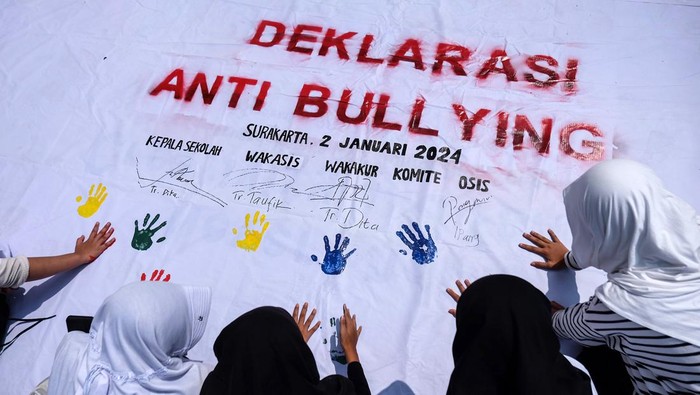 DEKLARASI
ANTI BULLYING
SURAKARTA, 2 JANUARI 2024
KEPALA SEKOLAH WAKASIS WAKAKUR KOMITE OSIS
Tr. Dita Tr. Taufik Tr. Dita